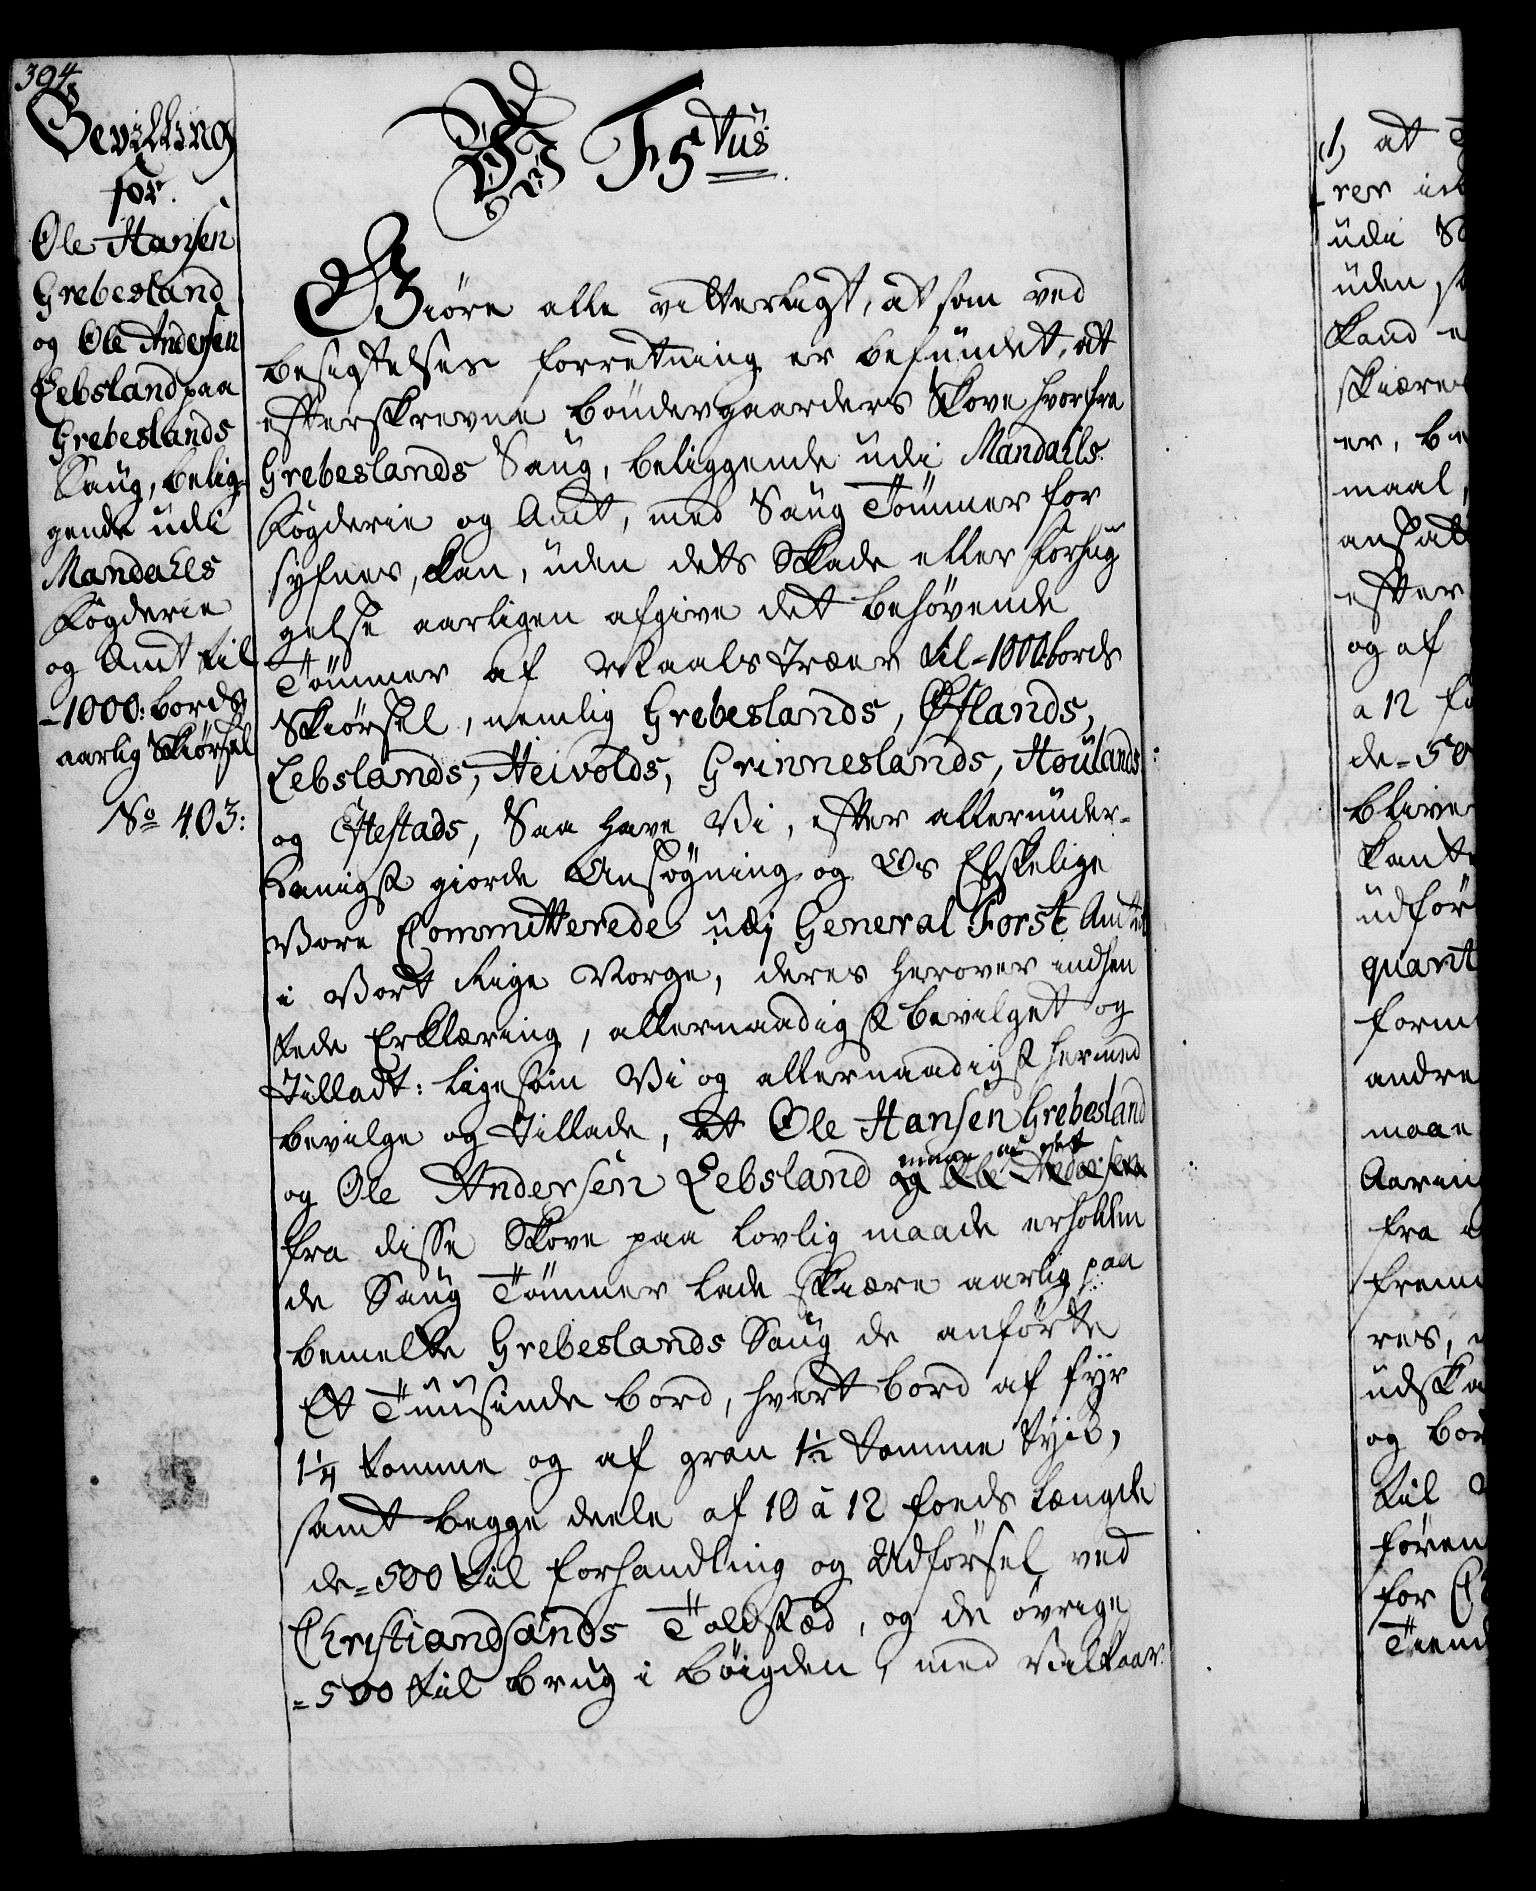 394
Bevilling
for
Ole Hansen
Grebesland
og Ole Andersen
Lebsland paa
Grebeslands
Saug, belig-
gende udi
Mandahls
Fögderie
og Amt til
-1000: bords
aarlig Skiørsel
No 403:
F5tus
Giöre alle vitterligt, at som ved
besigtelses forretning er befundet, at
efterskrevne böndergaarders Skove hvorfra
Grebeslands Saug, beliggende udi Mandahls
Fögderie og Amt, med Saug Tömmer for
syfnes, kan, uden dets Skade eller forhug
gelse aarligen afgive det behövende
Tömmer af Maals Træer til =1000 bords
Skiörsel, nemlig Grebeslands, Øflands,
Lebslands, Heivolds, Grinneslands, Houlands
og Eftestads, Saa have Vi, efter allerunder-
danigst giorde Ansögning og Os Elskelige
Vore Committerede udj General Forst Amtet
i Vort Rige Norge, deres herover indsen
dede Erklæring, allernaadigst bevilget og
Tilladt: ligesom Vi og allernaadigst hermed
bevilge og Tillade, at Ole Hansen Grebesland
og Ole Andersen Lebsland og Ole Andersen
maae af det
fra disse Skove paa lovlig maade erholden
de Saug Tömmer lade skiære aarlig paa
bemelte Grebeslands Saug de anförte
Et Tuusinde bord, hvert bord af fyr
1 1/4 Tomme og af gran 1 1/2 Tomme tyk,
samt begge deele af 10 à 12 foeds Længde
de =500 til forhandling og Udförsel ved
Christiandsands Toldsted, og de övrige
=500 til brug i böigden, med Vilkaar.
1) at
rer
udi
uden
kand
skiære
er, be
maal,
ansatt
efter
og af
a 12 fo
de =50
blive
kant
udför
quant
form
andre
maae
Aarin
fra
frem
res,
udska
og bor
til
fören
for
Tiend